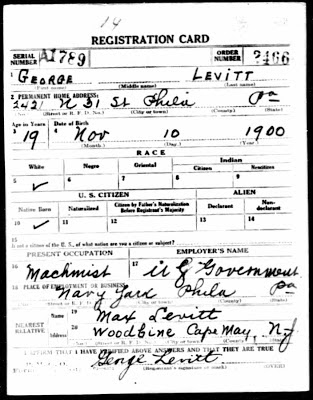 14
REGISTRATION CARD
SERIAL NUMBER A1789 ORDER NUMBER 2466
1 GEORGE LEVITT
(First name) (Middle name) (Last name)
2 PERMANENT HOME ADDRESS:
2421 N 31 St Phila Pa
(No.) (Street or R. F. D. No.) (City or town) (County) (State)
Age in Years Date of Birth
3 19 4 Nov 10 1900
(Month.) (Day.) (Year.)
RACE
White Negro Oriental Indian
Citizen Noncitizen
5 ✓ 6 7 8 9
U. S. CITIZEN ALIEN
Native Born Naturalized Citizen by Father's Naturalization Before Registrant's Majority Declarant Non-declarant
10 ✓ 11 12 13 14
15
If not a citizen of the U. S., of what nation are you a citizen or subject?
PRESENT OCCUPATION EMPLOYER'S NAME
16 Machinist 17 U S Government
18 PLACE OF EMPLOYMENT OR BUSINESS: Pa
Navy Yard Phila
(No.) (Street or R. F. D. No.) (City or town) (County) (State)
NEAREST RELATIVE
Name 19 Max Levitt
Address 20 Woodbine Cape May, N.J.
I AFFIRM THAT I HAVE VERIFIED ABOVE ANSWERS AND THAT THEY ARE TRUE
George Levitt
(Registrant's signature or mark) (OVER)